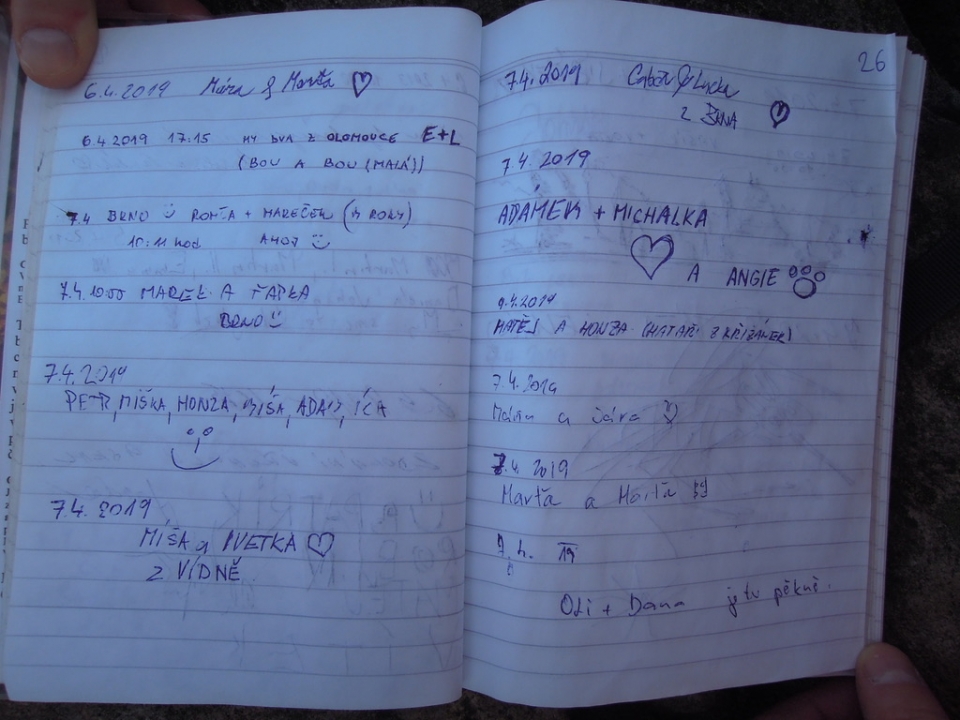 6.4.2019 Mára & Marťa
6.4.2019 17:15 MY DVA Z OLOMOUCE E+L
(BOU A BOU (MALÁ))
7.4 BRNO ROMČA + MAREČEK (4 ROKY)
10:11 hod AHOJ
7.4. 1000 MAREK A ŤAPKA
BRNO
7.4.2019
PETR, MIŠKA, HONZA, MÍŠA, ADAM, ÍČA
7.4.2019
MÍŠA a IVETKA
Z VÍDNĚ
26
7.4.2019 & Lucka
Z BRNA
7.4.2019
ADÁMEK + MICHALKA
A ANGIE
9.4.2019
MATĚJ A HONZA (HATAŘI Z KŘIŽÁNEK)
7.4.2019
Mára a Jára
7.4.2019
Marťa a
19
Oli + Dana je tu pěkně.